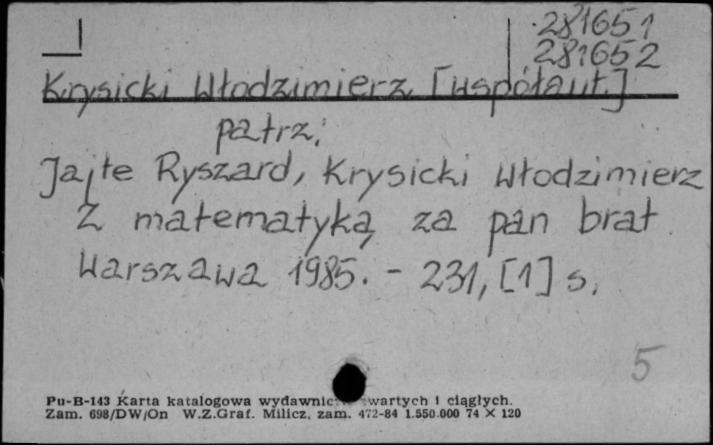 281651
281652
Krysicki Włodzimierz [współaut.]
patrz:
Jajte Ryszard, Krysicki Włodzimierz
Z matematyką za pan brat.
Warszawa 1985. - 231, [1] s.
5
Pu-B-143 Karta katalogowa wydawnic wartych i ciągłych.
Zam. 698/DW/On W.Z.Graf. Milicz, zam. 472-84 1.550.000 74 X 120